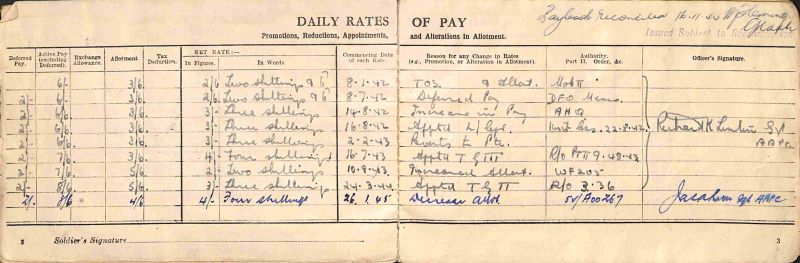 Paybook Reconciled 16.11.44
DAILY RATES OF PAY
Issued Subject to
Promotions, Reductions, Appointments, and Alterations in Allotment.
Deferred Pay. Active Pay (excluding Deferred). Exchange Allowance. Allotment Tax Deduction. NET RATE:— In Figures. In Words. Commencing Date of each Rate. Reason for any Change in Rates (e.g., Promotion, or Alteration in Allotment). Authority. Part II. Order, &c. Officer's Signature.
6/- 3/6 2/6 Two shillings & 6 8.1.42 T.O.S. & Allot. Mob II
2/- 6/- 3/6 2/6 Two shillings & 6 8.7.42 Deferred Pay DFO Memo.
2/- 3/6 3/- Three shillings 14.8.42 Increase in Pay AHQ
2/- 3/6 3/- Three shillings 16.8.42 Apptd L/Cpl. 22.8.42
2/- 3/6 3/- Three shillings 2.2.43 Reverts to Pte.
2/- 7/6 3/6 4/- Four shillings 16.7.43 Apptd T G III R/O Pt II 9.48.43
2/- 7/6 5/6 2/- Two shillings 10.9.43 Increased Allot. WF205
2/- 8/6 5/6 3/- Three shillings 24.3.44 Apptd T G II R/O 3.36
2/- 8/6 4/6 4/- Four shillings 26.1.45 Decrease Allot. SV/A00267
Richard K Sgt
AAPC
Sgt AAPC
2 Soldier's Signature
3